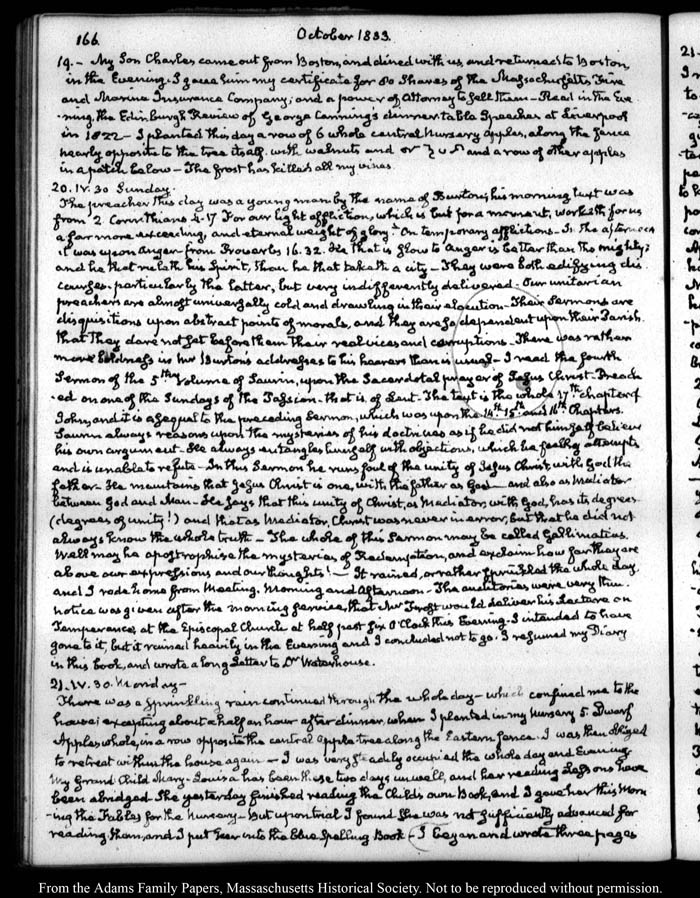 166 October 1833.
19.- My Son Charles came out from Boston, and dined with us, and returned to Boston
in the Evening. I gave him my certificate for 80 Shares of the Massachusetts Fire
and Marine Insurance Company; and a power of Attorney to sell them - Read in the Eve
ning, the Edinburgh Review of George Canning's dinner table Speeches at Liverpool
in 1822 - I planted this day a row of 6 whole central Nursery apples, along the fence
nearly opposite to the tree itself, with walnuts and and a row of other apples
in a patch below - The frost has killed all my vines.
20. IV. 30 Sunday
The preacher this day was a young man by the name of Burton; his morning text was
from 2 Corinthians 4.17 For our light affliction, which is but for a moment, worketh for us
a far more exceeding, and eternal weight of glory. On temporary afflictions - In the afternoon
it was upon Anger from Proverbs 16.32. He that is slow to anger is better than the mighty;
and he that ruleth his Spirit, than he that taketh a city - They were both edifying dis
courses, particularly the latter, but very indifferently delivered. Our unitarian
preachers are almost universally cold and drawling in their elocution - Their Sermons are
disquisitions upon abstract points of morals, and they are so dependent upon their Parish
that they dare not set before them their real vices and corruptions - There was rather
more boldness in Mr Burton's addresses to his hearers than is usual - I read the fourth
Sermon of the 5th Volume of Saurin, upon the Sacerdotal prayer of Jesus Christ. Preach
-ed on one of the Sundays of the Passion. that is of Lent. The text is the whole 17th chapter of
John, and it is a sequel to the preceding Sermon, which was upon the 14th. 15th. and 16th Chapters.
Saurin always reasons upon the mysteries of his doctrines as if he did not himself believe
his own argument. He always entangles himself with objections, which he feebly attempts
and is unable to refute - In this Sermon he runs foul of the unity of Jesus Christ, with God the
father - He maintains that Jesus Christ is one, with the father as God - and also as Mediator
between God and Man - He says that this unity of Christ, as Mediator, with God, has its degrees
(degrees of unity!) and that as Mediator, Christ was never in error, but that he did not
always know the whole truth - The whole of this Sermon may be called Gallimatias.
Well may he apostrophise the mysteries, of Redemption, and exclaim how far they are
above our expressions and our thoughts! - It rained, or rather sprinkled the whole day.
and I rode home from Meeting, Morning and Afternoon - The auditories were very thin.
notice was given after the morning service, that Mr Frost would deliver his Lecture on
Temperance, at the Episcopal Church at half past six O'Clock this Evening. I intended to have
gone to it, but it rained heavily in the Evening and I concluded not to go. I resumed my Diary
in this book, and wrote a long Letter to Dr Waterhouse.
21. IV. 30. Monday -
There was a sprinkling rain continued through the whole day - which confined me to the
house; excepting about a half an hour after dinner, when I planted in my Nursery 5 Dwarf
Apples whole, in a row opposite the central apple tree along the Eastern fence. I was then obliged
to retreat within the house again - I was very steadily occupied the whole day and Evening
My Grand Child Mary-Louisa has been these two days unwell, and her reading Lessons have
been abridged - She yesterday finished reading the Child's own Book, and I gave her this Morn
-ing the Fables for the Nursery - But upon trial I found she was not sufficiently advanced for
reading them, and I put her into the blue Spelling Book - I began and wrote three pages
21.
From the Adams Family Papers, Massachusetts Historical Society. Not to be reproduced without permission.